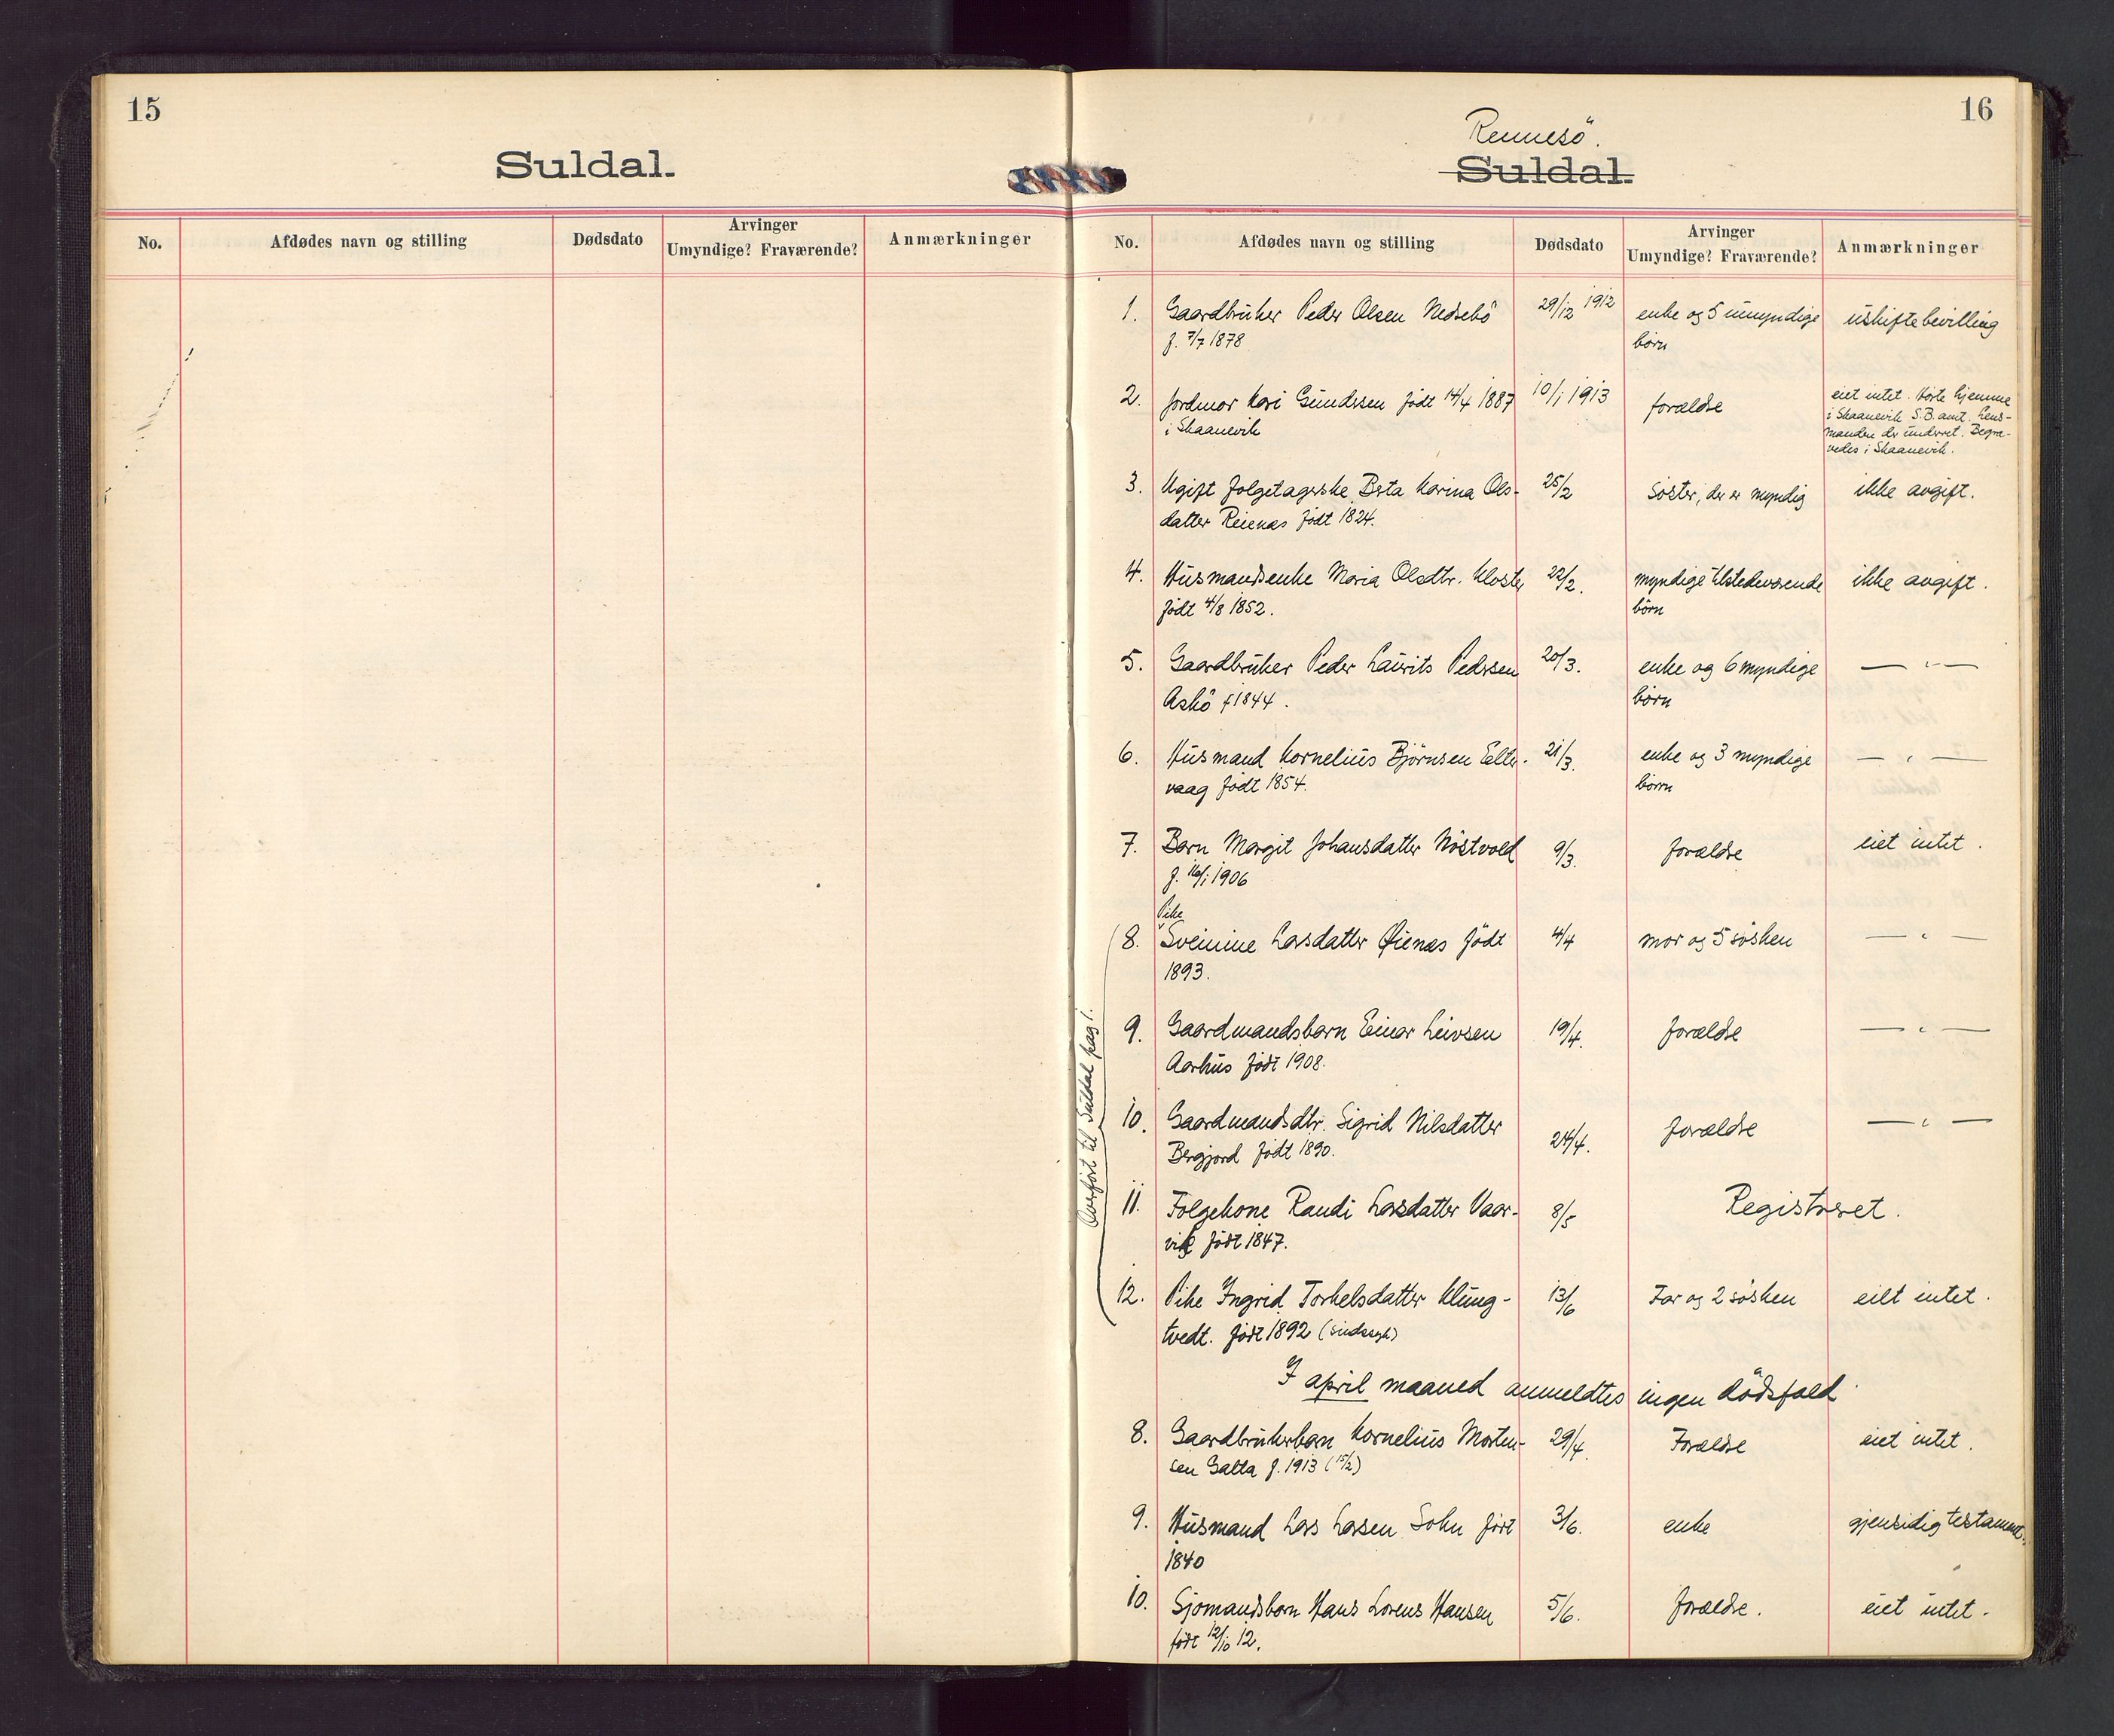 15
Suldal.
No. Afdødes navn og stilling Dødsdato Arvinger Umyndige? Fraværende? Anmærkninger
16
Rennesö.
Suldal.
No. Afdødes navn og stilling Dødsdato Arvinger Umyndige? Fraværende? Anmærkninger
1. Gaardbruker Peder Olsen Nedrebö 29/12 1912 enke og 5 umyndige uskiftebevilling
f. 7/7 1878 börn
2. Jordmor Kari Gundersen födt 14/4 1887 10/1 1913 forældre eiet intet. Hörte hjemme
i Skaanevik i Skaanevik S.B. amt. Lens-
manden der underret. Begra-
vedes i Skaanevik.
3. Ugift folgetagerske Berta Karina Ols- 25/2 Söster, der er myndig ikke avgift.
datter Reienæs födt 1824.
4. Husmandsenke Maria Olsdtr. Kloster 22/2. myndige tilstedeværende ikke avgift.
födt 4/8 1852. börn
5. Gaardbruker Peder Laurits Pedersen 20/3. enke og 6 myndige — " —
Askö f 1844. börn
6. Husmand Kornelius Björnsen Elter- 21/3. enke og 3 myndige — " —
vaag födt 1854. börn
7. Barn Margit Johansdatter Nöstvold 9/3. forældre eiet intet.
f. 16/1 1906
Pike
8. Sveinine Larsdatter Øienæs födt 4/4 mor og 5 sösken — " —
1893.
9. Gaardmandsbarn Einar Leivsen 19/4. forældre — " —
Aarhus födt 1908.
10. Gaardmandsdtr. Sigrid Nilsdatter 24/4. forældre — " —
Bergjord födt 1890.
11. Folgekone Randi Larsdatter Vaar- 8/5 Registreret.
vik födt 1847.
12. Pike Ingrid Torkelsdatter Klung- 13/6 Far og 2 sösken eiet intet.
tvedt. födt 1892 (sindssyk)
Overfört til Suldal pag 1.
I april maaned anmeldtes ingen dödsfald.
8. Gaardbrukerbarn Kornelius Morten- 29/4. Forældre eiet intet.
sen Galta f. 1913 (15/2)
9. Husmand Lars Larsen Sokn födt 3/6. enke gjensidig testament.
1840
10. Sjömandsbarn Hans Lorens Hansen 5/6. forældre. eiet intet.
födt 12/10 12.